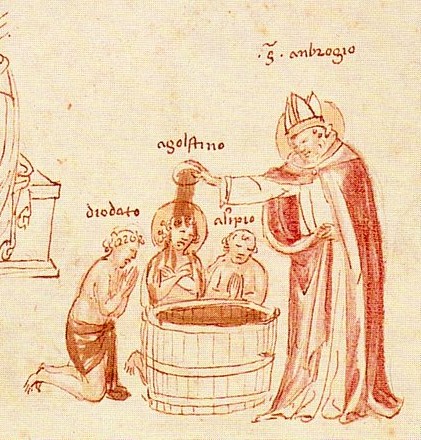 S. ambrogio
agostino
diodato
alipio